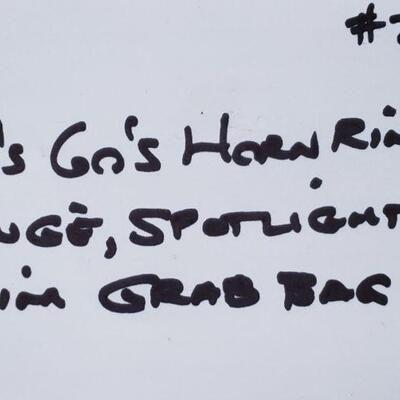 #
's 60's HORN RIN
UGE, SPOTLIGHT
IM GRAB BAG